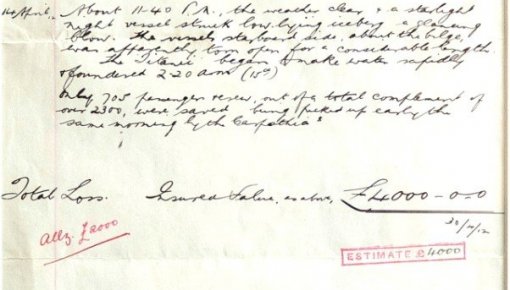 14th April. About 11-40 P.M., the weather clear & a starlight
night vessel struck low-lying iceberg a glancing
blow. The vessels starboard side, about the bilge,
was apparently torn open for a considerable length.
The Titanic began to make water rapidly
& foundered 2-20 am (15th)
Only 705 passengers & crew, out of a total complement of
over 2300, were saved being picked up early the
same morning by the "Carpathia"
Total Loss. Insured Value, as above, £4000-0-0
Allz. £2000
30/4/12
ESTIMATE £4000